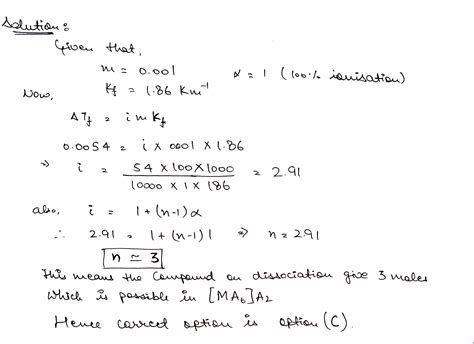 Solution:
Given that,
m = 0.001 α = 1 (100% ionisation)
Now, Kf = 1.86 Km⁻¹
ΔTf = i m Kf
0.0054 = i × 0.001 × 1.86
⇒ i = 54 × 100 × 1000 / 10000 × 1 × 186 = 2.91
also, i = 1 + (n-1) α
∴ 2.91 = 1 + (n-1) 1 ⇒ n = 2.91
n ≃ 3
This means the Compound on dissociation give 3 moles
which is possible in [MA₆]A₂
Hence correct option is option (C).